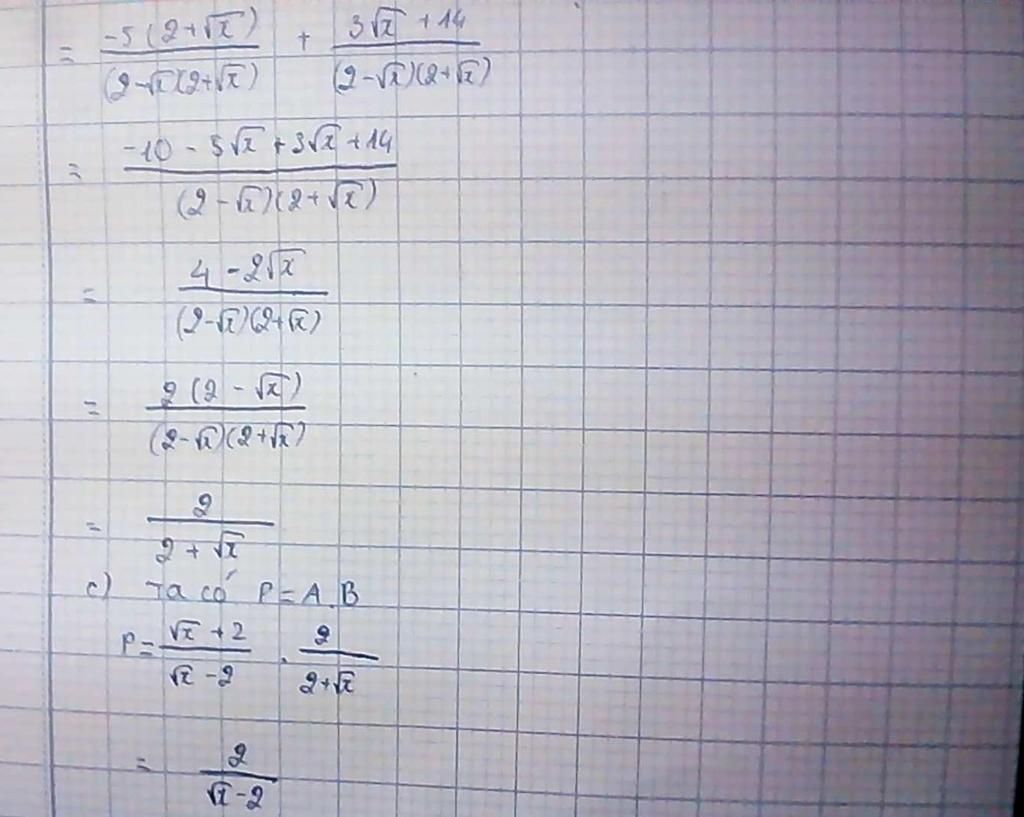 = \frac{-5(2+\sqrt{x})}{(2-\sqrt{x})(2+\sqrt{x})} + \frac{3\sqrt{x}+14}{(2-\sqrt{x})(2+\sqrt{x})}
= \frac{-10-5\sqrt{x}+3\sqrt{x}+14}{(2-\sqrt{x})(2+\sqrt{x})}
= \frac{4-2\sqrt{x}}{(2-\sqrt{x})(2+\sqrt{x})}
= \frac{2(2-\sqrt{x})}{(2-\sqrt{x})(2+\sqrt{x})}
= \frac{2}{2+\sqrt{x}}
c) Ta có P = A.B
P = \frac{\sqrt{x}+2}{\sqrt{x}-2} . \frac{2}{2+\sqrt{x}}
= \frac{2}{\sqrt{x}-2}